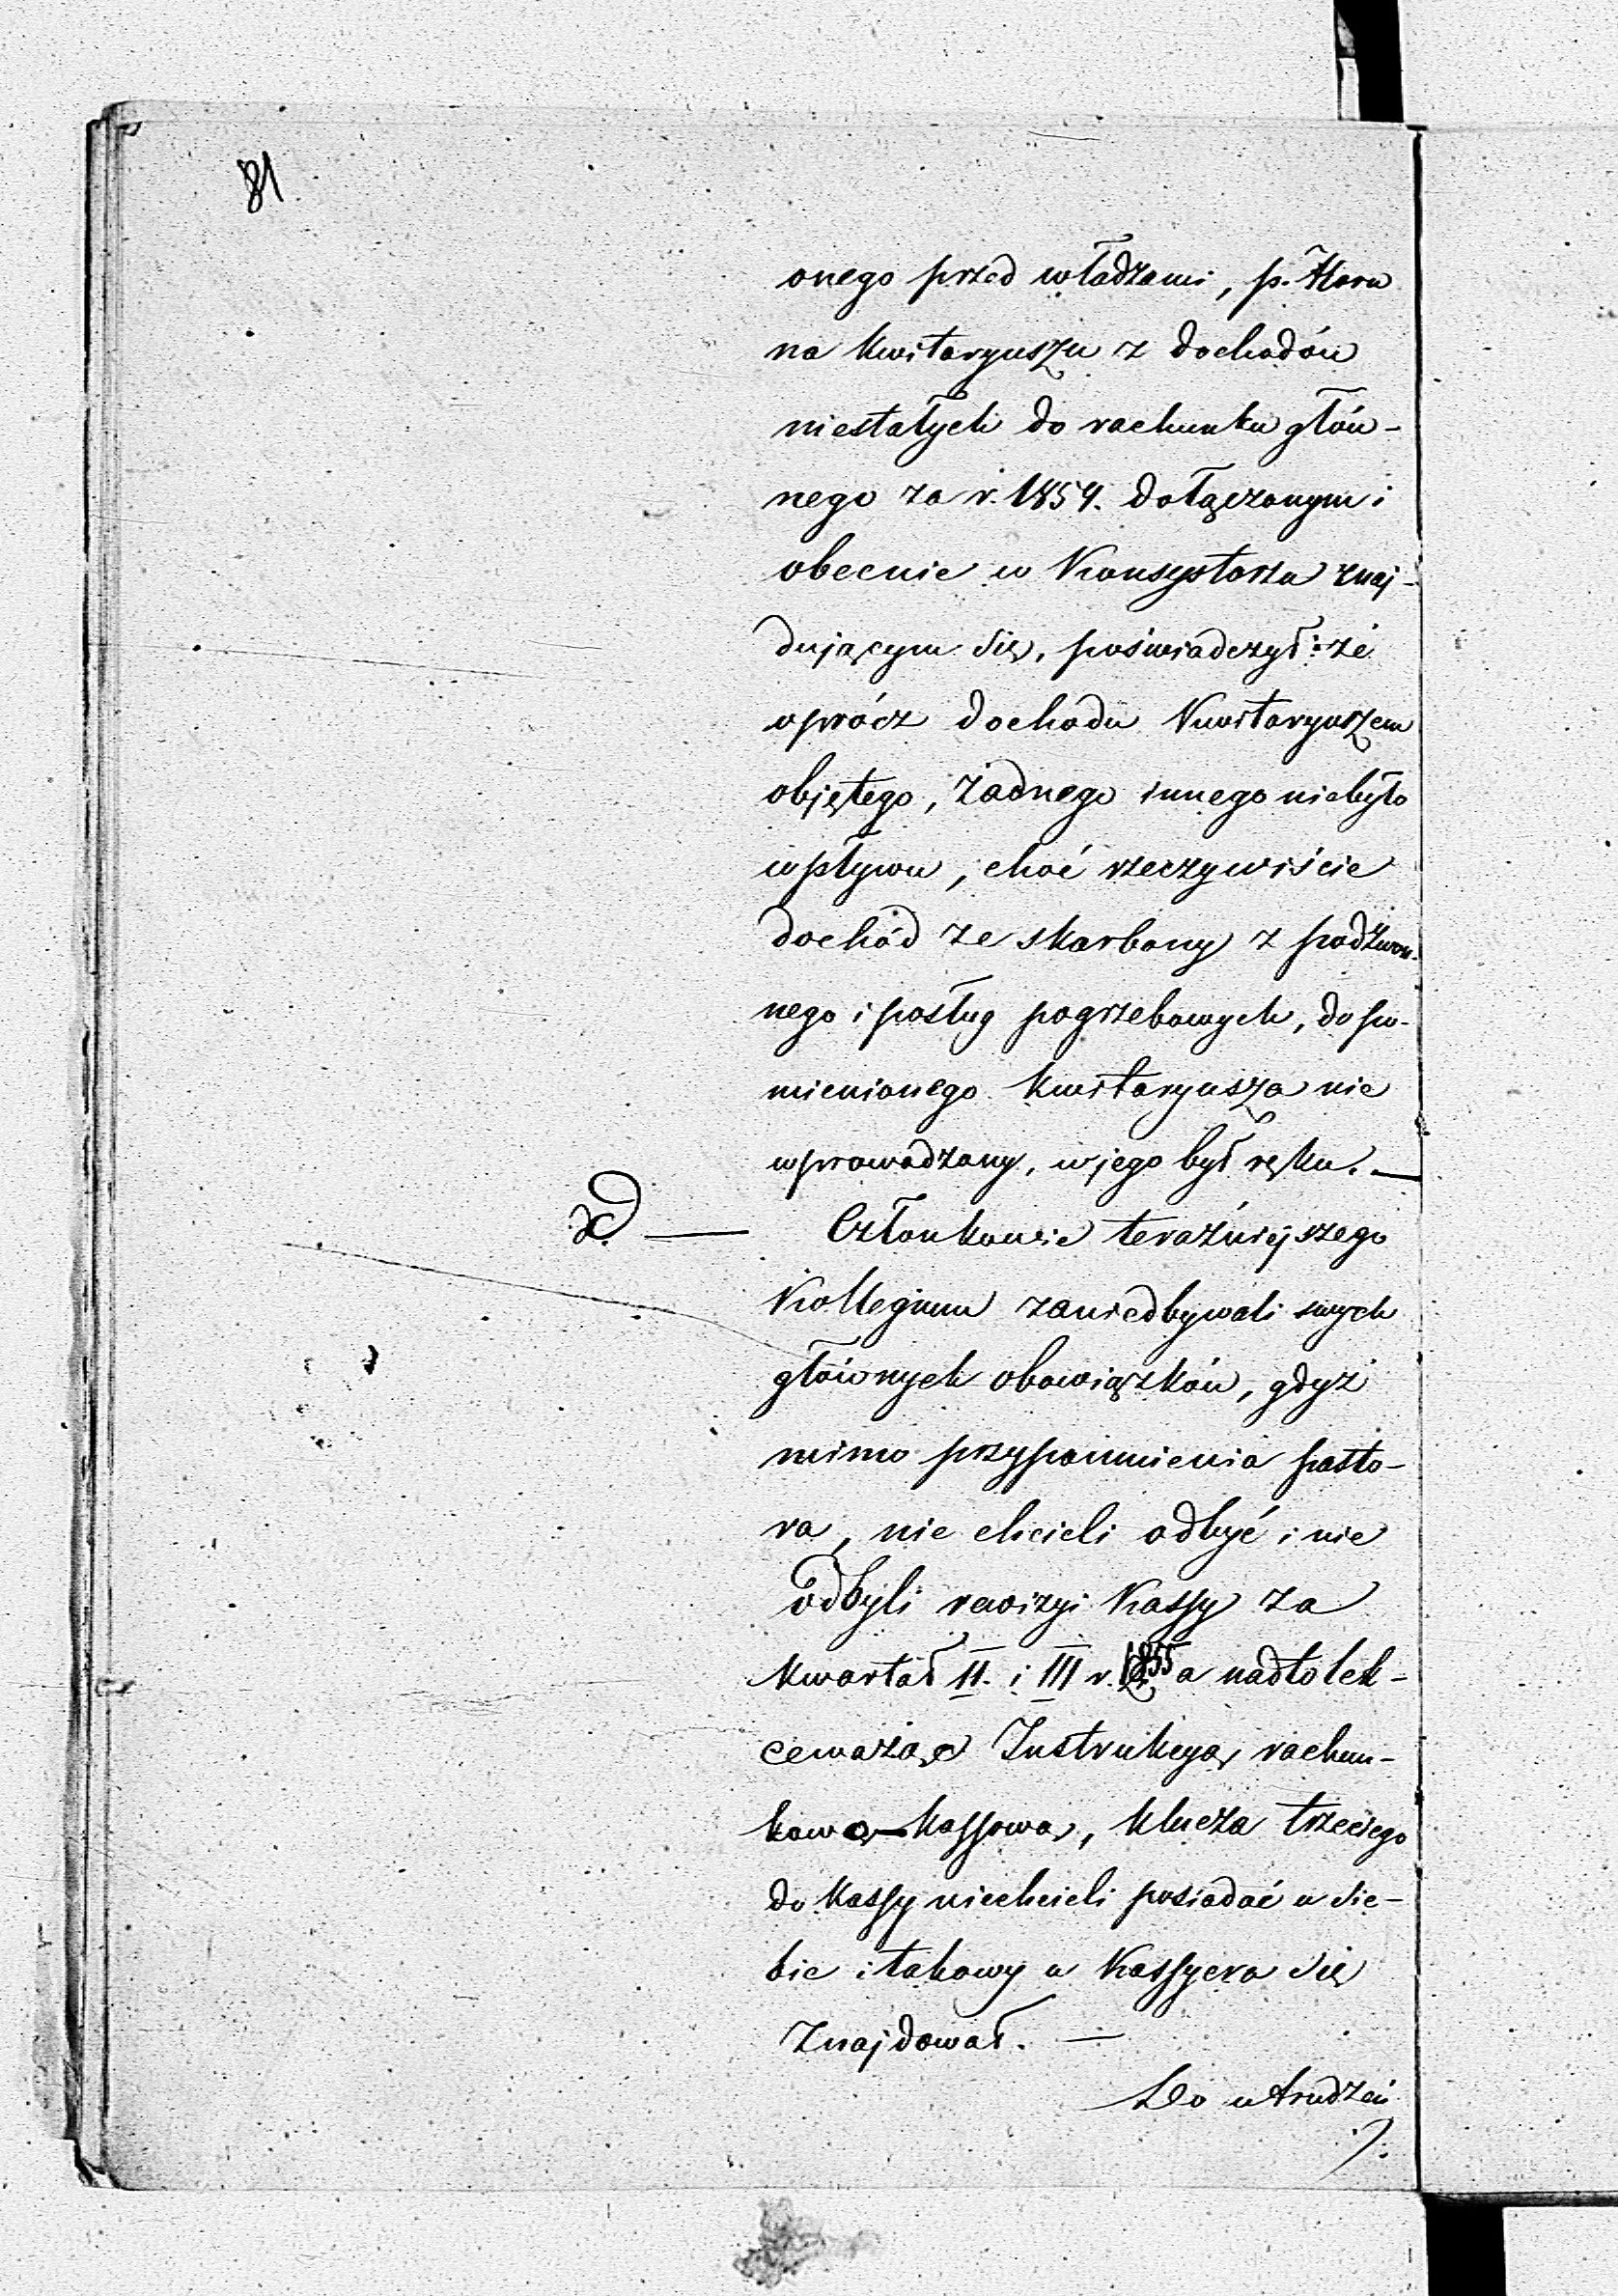 81
onego przed władzami, p. Horn
na kwitaryuszu z dochodów
niestałych do rachunku głów-
nego za r. 1854. dołączonym i
obecnie w Konsystorzu znaj-
dującym się, poświadczył: że
oprócz dochodu Kwitaryuszem
objętego, żadnego innego niebyło
wpływu, choć rzeczywiście
dochód ze skarbony z podzwon-
nego i posług pogrzebowych, do po-
mienionego kwitaryusza nie
wprowadzony, w jego był ręku. —
— Członkowie teraźniejszego
Kollegium zaniedbywali swych
głównych obowiązków, gdyż
mimo przypomnienia pasto-
ra, nie chcieli odbyć i nie
odbyli rewizyi Kassy za
kwartał II. i III r. 1855 a nadto lek-
ceważąc Instrukcyą rachun-
kową-kassową, klucza trzeciego
do kassy niechcieli posiadać u sie-
bie i takowy u Kassyera się
znajdował. —
Do utrudzeń